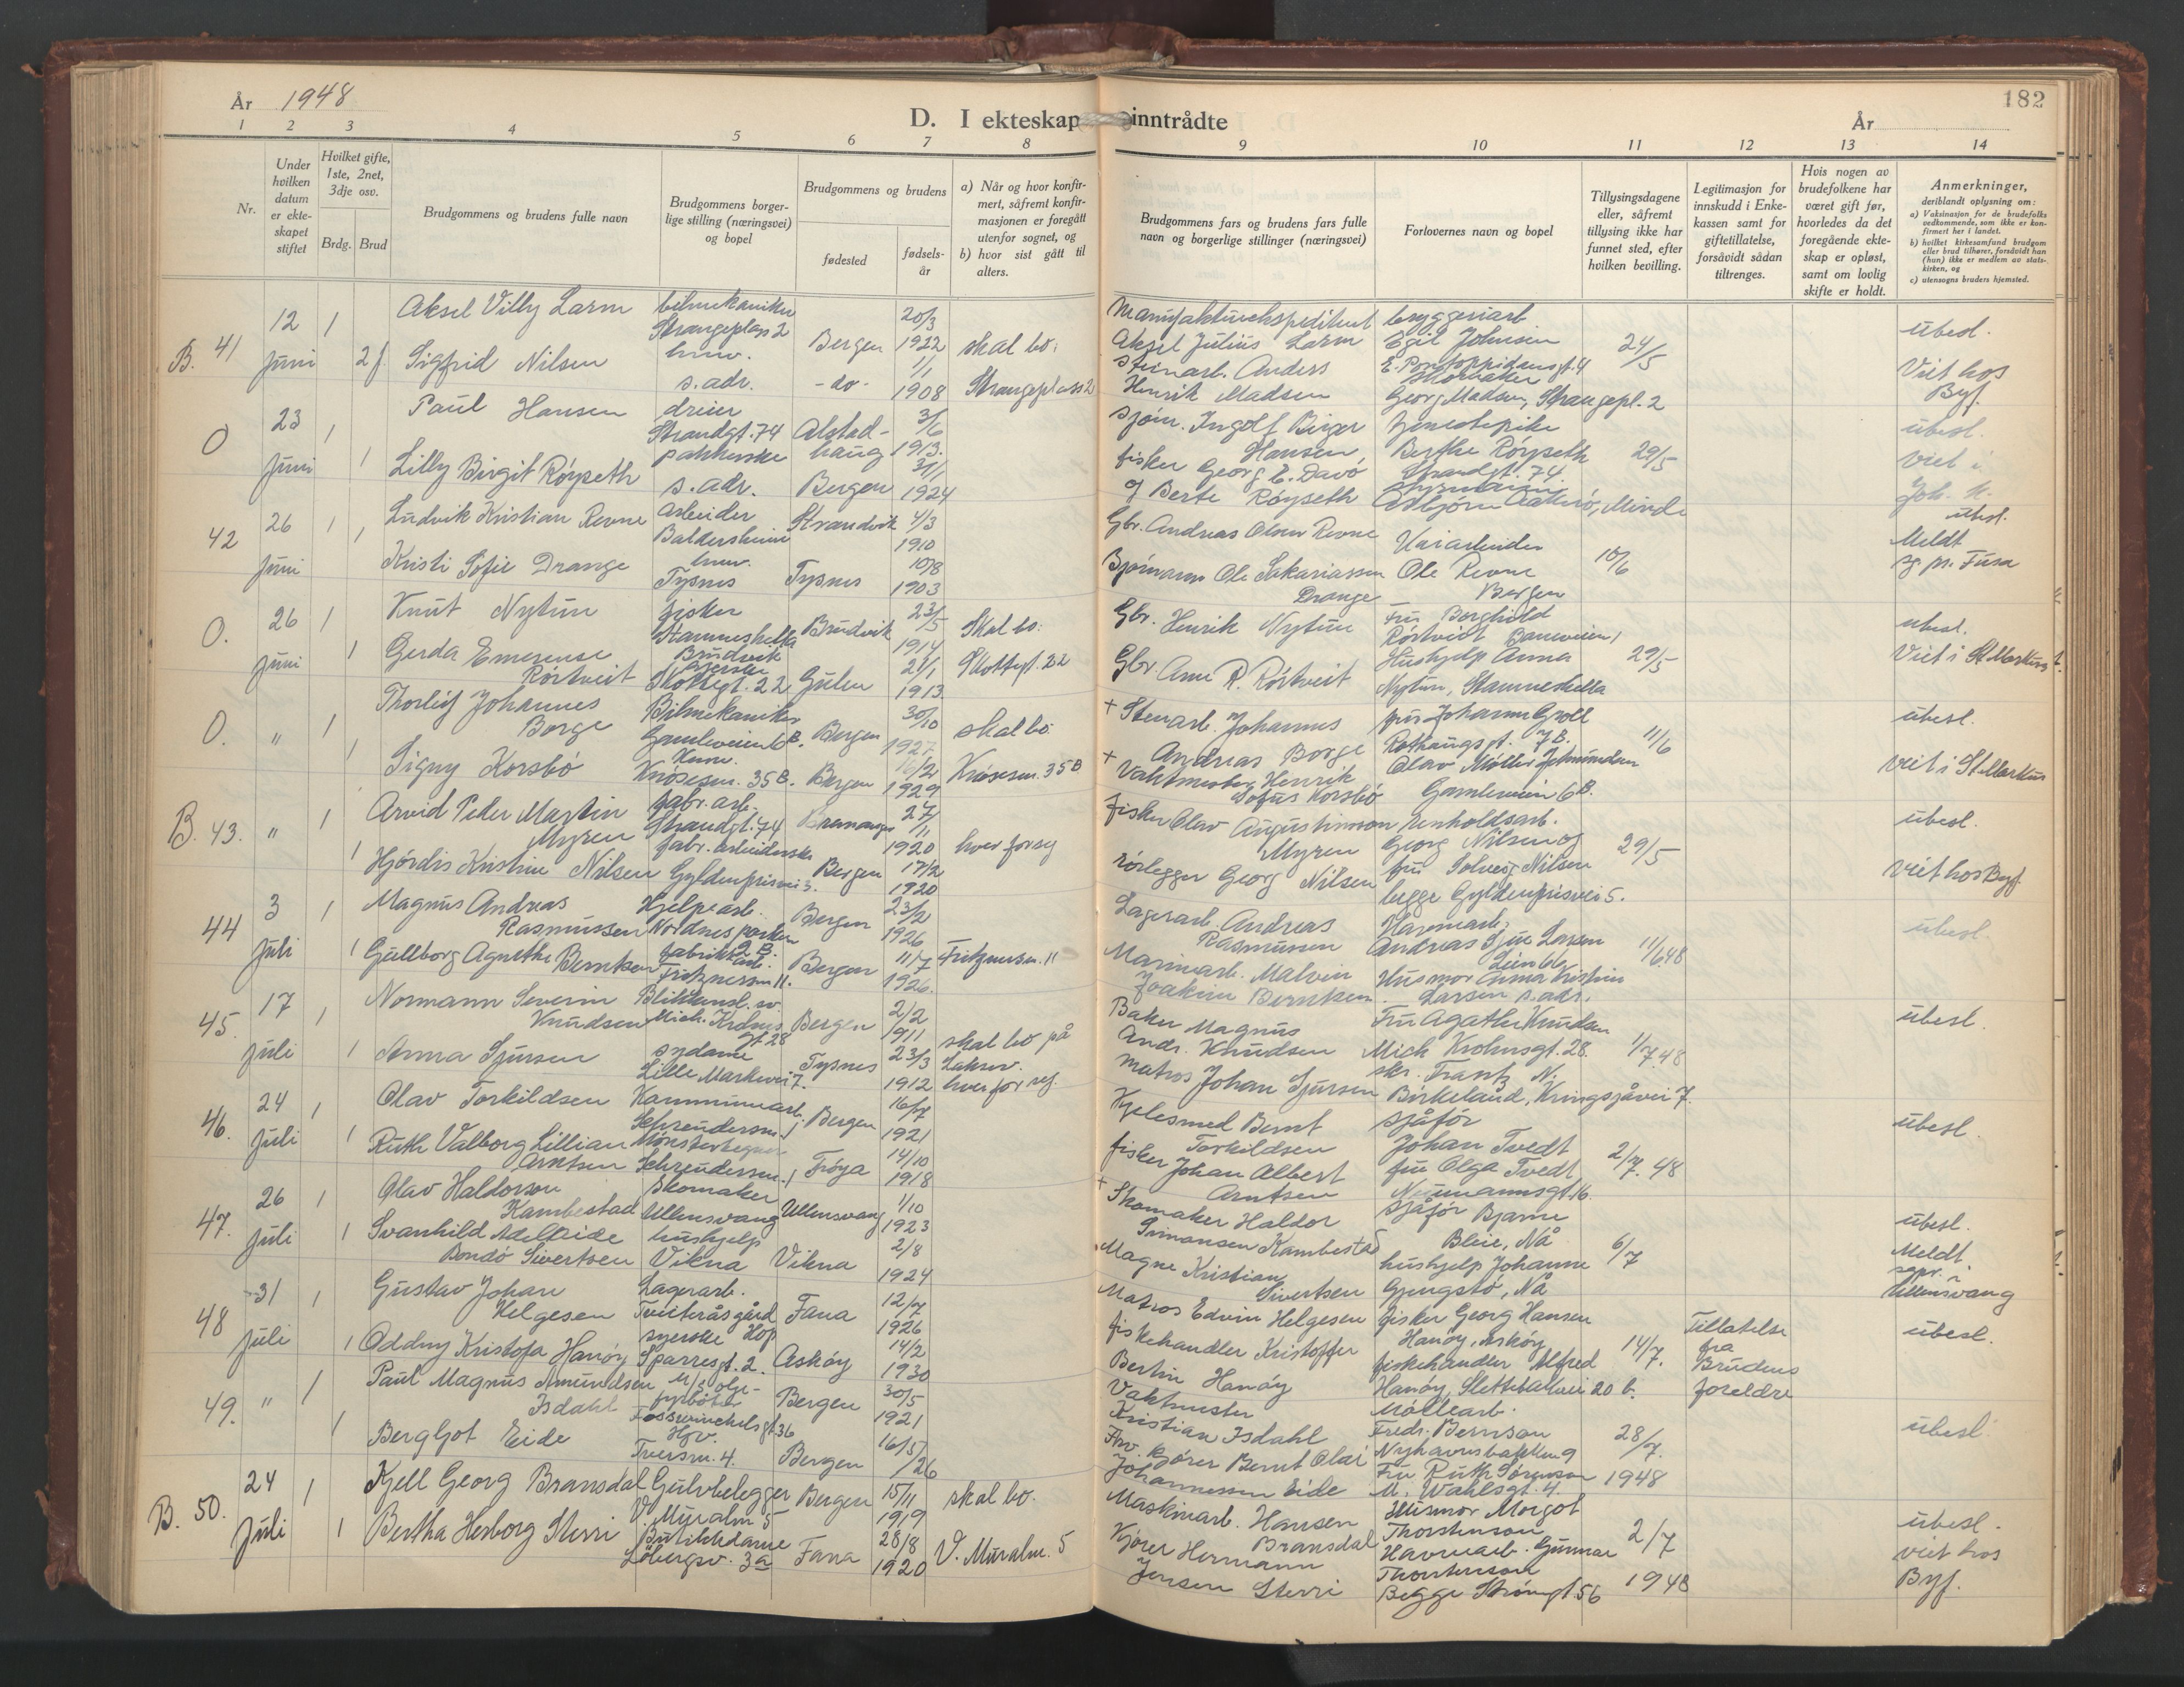 År 1948
D. I ekteskap inntrådte
År
182
1 2 3 4 5 6 7 8 9 10 11 12 13 14
Nr.
Under hvilken datum er ekte-skapet stiftet
Hvilket gifte, 1ste, 2net, 3dje osv.
Brdg. Brud
Brudgommens og brudens fulle navn
Brudgommens borger-lige stilling (næringsvei) og bopel
Brudgommens og brudens
fødested
fødsels-år
a) Når og hvor konfir-mert, såfremt konfir-masjonen er foregått utenfor sognet, og
b) hvor sist gått til alters.
Brudgommens fars og brudens fars fulle navn og borgerlige stillinger (næringsvei)
Forlovernes navn og bopel
Tillysingsdagene eller, såfremt tillysing ikke har funnet sted, efter hvilken bevilling.
Legitimasjon for innskudd i Enke-kassen samt for giftetillatelse, forsåvidt sådan tiltrenges.
Hvis nogen av brudefolkene har været gift før, hvorledes da det foregående ekte-skap er opløst, samt om lovlig skifte er holdt.
Anmerkninger, deriblandt oplysning om:
a) Vaksinasjon for de brudefolks vedkommende, som ikke er kon-firmert her i landet.
b) hvilket kirkesamfund brudgom eller brud tilhører, forsåvidt han (hun) ikke er medlem av stats-kirken, og
c) utensogns bruders hjemsted.
B. 41 12 Juni 1 Aksel Villy Larm bilmekaniker Strangeplass 2 Bergen 20/3 1922 skal bo:
2 f. Sigfrid Nilsen hmv. s. adr. - do - 1/1 1908 Strangeplass 2
Manufakturekspeditent Aksel Julius Larm
Steinarb. Anders Henrik Madsen
bryggeriarb Egil Johnsen E. Pontoppidansgt. 4
Skomaker Georg Madsen, Strangepl. 2
24/5
ubesl.
Viet hos Byf.
O 23 Juni 1 Paul Hansen dreier Strandgt. 74 Alstad-haug 3/6 1913.
1 Lilly Birgit Röyseth pakkerske s. adr. Bergen 31/1 1924
Sjöm. Ingolf Birger Hansen,
fisker Georg E. Davö og Berte Röyseth
Berthe Röyseth Strandgt. 74
Asbjörn Aakerö, Minde
29/5
ubesl.
viet i Joh. k.
42 26 Juni 1 Ludvik Kristian Revne arbeider Baldersheim Strandvik 4/3 1910
1 Kristi Sofie Drange hmv. Tysnes Tysnes 10/8 1903
Gbr. Andreas Olsen Revne
Björnarm Ole Sakariassen Drange
Ole Revne Bergen
10/6
ubesl.
Meldt sg. pr. Fusa
O. 26 Juni 1 Knut Nytun fisker Stamneshella Bruvik Brudvik 23/5 1914 Skal bo:
1 Gerda Emerense Rörtveit Skottegt. 22 Gulen 21/1 1913 Skottegt. 22
Gbr. Henrik Nytun
Gbr Arne R. Rörtveit
Fru Borghild Rörtveit Baneveien 1
Hushjelp Anna Nytun, Stamneshella
29/5
ubesl.
Viet i St. Markus k.
O. " 1 Thorleif Johannes Borge Bilmekaniker Gamleveien 6 B. Bergen 30/10 1927 skal bo:
1 Signy Korsbö Knösesm. 35 B. Bergen 16/2 1929 Knösesm. 35 B
+ Stenarb. Johannes Andreas Borge
+ Vaktmester Henrik Sofus Korsbö
fru Johanne Groll Rothaugsgt. 7 B.
Olav Möller Gamleveien 6 B.
11/6
ubesl.
viet i St Markus
B. 43. " 1 Arvid Peder Martin Myren fabr. arb. Strandgt. 74 Bremanger 27/11 1920 hver for seg
1 Hjördis Kristine Nilsen fabr. arbeiderske Gyldenprisvei 5. Bergen 17/2 1920
fisker Olav Augustinson Myren
rörlegger Georg Nilsen
renholdsarb. Georg Nilsen og
fru Solveig Nilsen begge Gyldenprisvei 5.
29/5
ubesl.
viet hos Byf.
44 3 Juli 1 Magnus Andreas Rasmussen Hjelpearb. Nordnesparken 2 B. Bergen 23/2 1926
1 Gullborg Agnethe Berntsen fabrikkarb. Fritznersm 11. Bergen 11/7 1926. Fritznersm. 11
Lagerarb. Andreas Rasmussen
Marinearb. Malvin Joakim Berntsen
Havnearb. Andreas Sjue Larsen
Husmor Anna Kristine Larsen s. adr.
11/6 48
ubesl.
45. 17 Juli 1 Normann Severin Knudsen Blikkensl. sv. Mich. Krohns gt 28 Bergen 2/2 1911 skal bo på Laksev.
1 Anna Sjursen sydame Lille Markevei 7. Tysnes 23/3 1912 hver for sej.
Baker Magnus Andr. Knudsen
Matros Johan Sjursen
Fru Agathe Knudsen Mich Krohnsgt. 28.
skr. Frantz N. Birkeland, Kringsjåvei 7.
1/7 48
ubesl.
46. 24 Juli 1 Olav Torkildsen Kommunearb. Schreudersm. 1 Bergen 16/7 1921
1 Ruth Valborg Lillian Arntsen Mönstertegner Schreudersm. 1 Fröya 14/10 1918
Kjelesmed Bernt Torkildsen
fisker Johan Albert Arntsen
sjåför Johan Tvedt
fru Olga Tvedt, Neumannsgt. 16.
2/7. 48
ubesl.
47. 26 Juli 1 Olav Haldorson Kambestad Skomaker Ullensvang Ullensvang 1/10 1923
1 Svanhild Adelleide Bondö Sivertsen hushjelp Vikna Vikna 2/8 1924
+ Skomaker Haldor Simonsen Kambestad
Magne Kristian Sivertsen
sjåför Bjarne Bleie, Nå
hushjelp Johanne Gjengstö, Nå
6/7
ubesl.
Meldt sopr. i Ullensvang
48 31 Juli 1 Gustav Johan Helgesen Lagerarb. Tveiteråsgård Hop Fana 12/7 1926
1 Oddny Kristofa Hanöy syerske Sparresgt. 2. Asköy 14/2 1930
Matros Edvin Helgesen
fiskehandler Kristoffer Bertin Hanöy
fisker Georg Hansen Hanöy, Asköy
fiskehandler Alfred Hanöy, Slettebakkvei 20 b.
14/7.
Tillatelse fra Brudens foreldre
ubesl.
49. " 1 Paul Magnus Amundsen Isdahl fyrböter Fosswinckelsgt 36 Bergen 30/5 1921
1 Bergljot Eide Hjv. Tversm. 4. Bergen 16/5 /26
Vaktmester Kristian Isdahl
Arv. kjörer Bernt Olai Johannessen Eide
Möllearb. Fredr. Berntson Nyhavnsbakken 9
Fru Ruth Sörensen M. Wahlsgt. 4.
28/7. 1948
ubesl.
B. 50. 24 Juli 1 Kjell Georg Bransdal Gulvbelegger V. Muralm 5 Bergen 15/11 1919 skal bo.
1 Bertha Herborg Sterri Butikkdame Löbergsv. 3a Fana 28/8 1920 V. Muralm. 5
Maskinarb. Hansen Bransdal
Kjörer Hermann Jensen Sterri
Husmor Margot Thorstenson
Havnearb. Gunnar Thorstenson
Begge Strömgt. 56
2/7 1948
ubesl.
viet hos Byf.